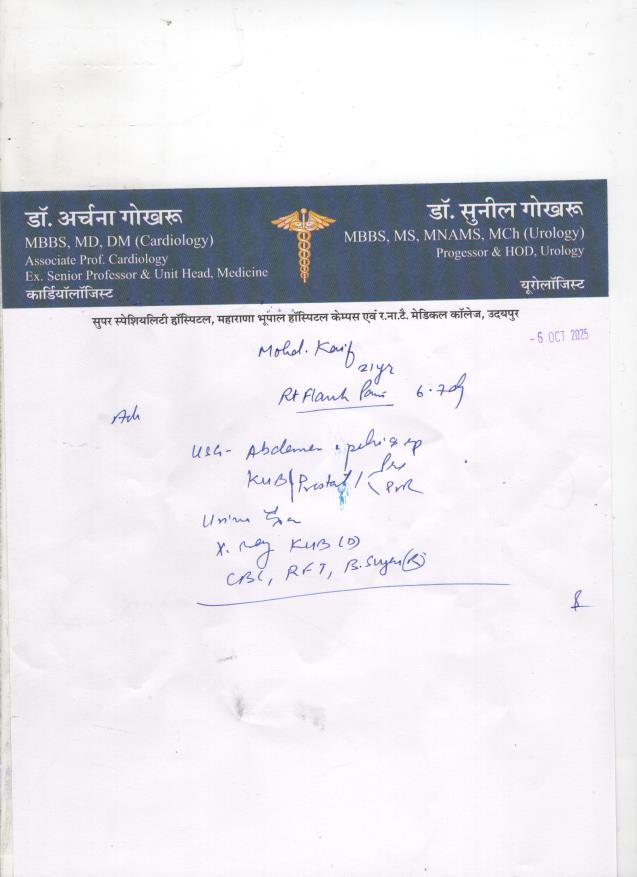 डॉ. अर्चना गोखरू
MBBS, MD, DM (Cardiology)
Associate Prof. Cardiology
Ex. Senior Professor & Unit Head, Medicine
कार्डियॉलॉजिस्ट
डॉ. सुनील गोखरू
MBBS, MS, MNAMS, MCh (Urology)
Progessor & HOD, Urology
यूरोलॉजिस्ट
सुपर स्पेशियलिटी हॉस्पिटल, महाराणा भूपाल हॉस्पिटल केम्पस एवं र.ना.टै. मेडिकल कॉलेज, उदयपुर
- 6 OCT 2025
Mohd. Kaif
21yr
Rt Flank Pain 6-7d
Adv
USG- Abdomen
KUB/Prostat/
PVR
Urine
X. Ray KUB (D)
CBC, RFT, B.Sugar (R)